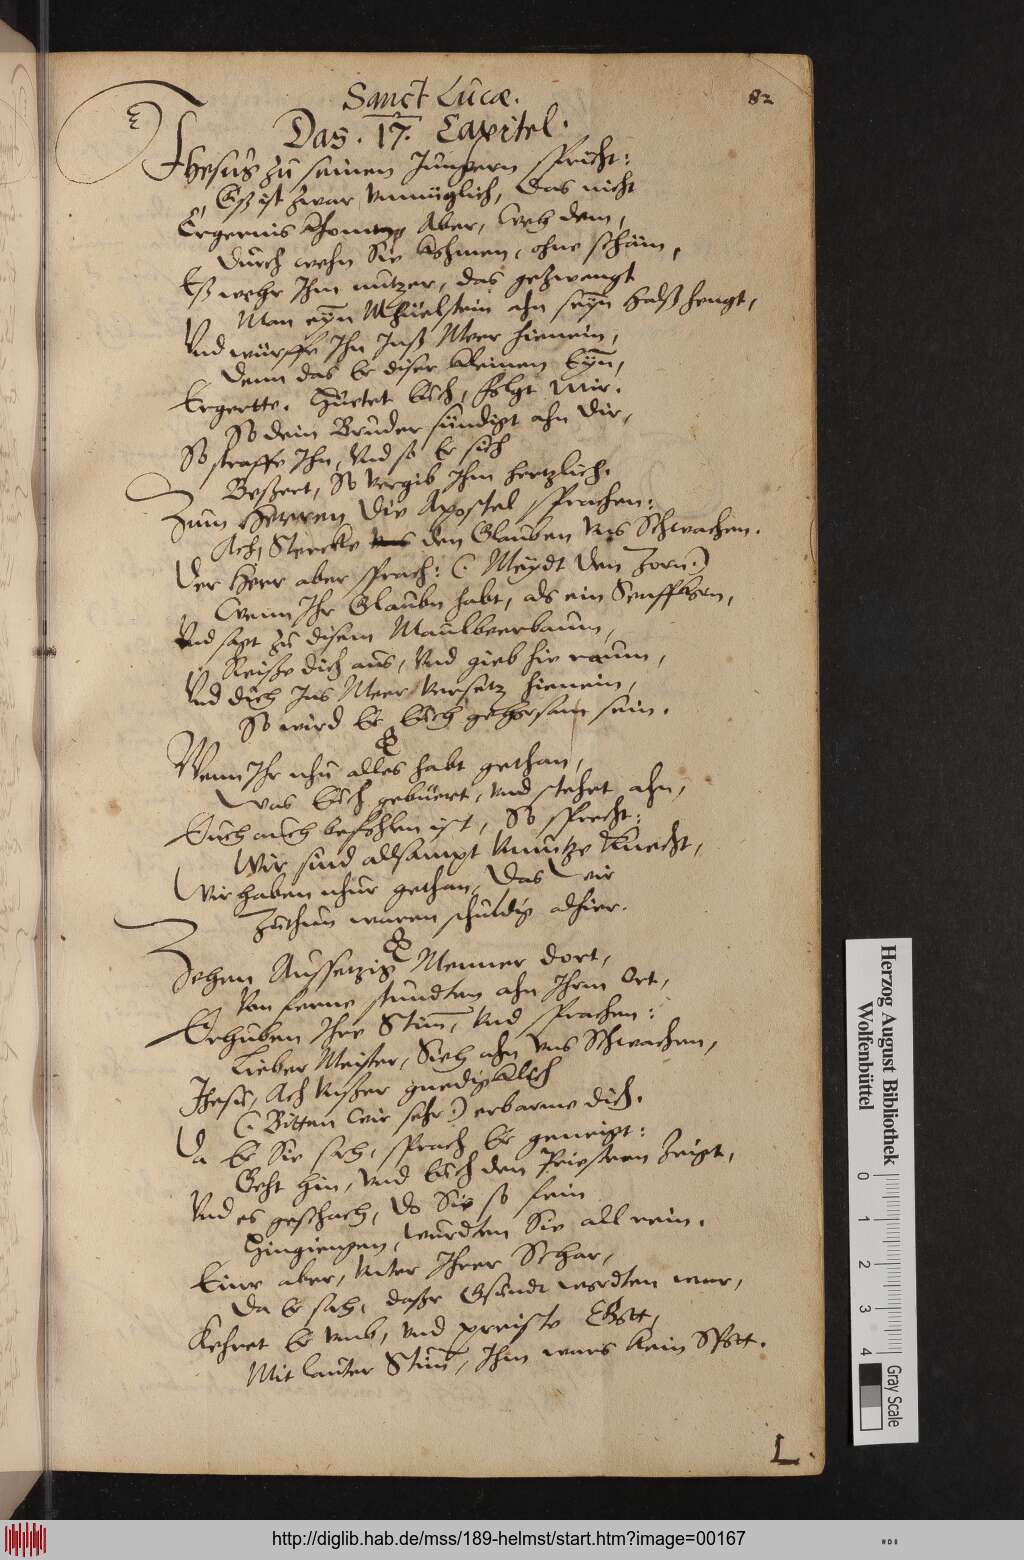 82
Sanct Lucæ.
Das. 17. Capitel.
Jhesus zu seinen Jungern spricht:
Eß ist zwar vnmüglich, das nicht
Ergernis khomme, Aber, weh dem,
durch wehn Sie khomen, ohne schäm,
Eß wehr Ihm nutzer, das gezwengt
Man eyn Mhüelstein ahn seyn Halß hengt,
Vnd würffe Ihn Inß Meer hienein,
denn das Er diser kleinen Eyn,
Ergertte. Hüetet Euch, folgt Mir.
So dein Bruder sündigt ahn dir,
So straffe Ihn, Vnd so Er sich
Beßert, So vergib Ihm hertzlich.
Zum Herren die Apostel sprachen:
Ach, Stercke den Glauben vns Schwachen.
Der Herr aber sprach: (: Meydt den Zorn:)
wenn Ihr Glaubn habt, als ein Senffkorn,
Vnd sagt zu disem Maulbeerbaum,
Reiße dich aus, Vnd gieb hie raum,
Vnd dich Ins Meer versetz hienein,
So wird Er Euch gehorsam sein.
Wenn Ihr nhu alles habt gethan,
was Euch gebüert, vnd stehet ahn,
Euch auch befohlen ist, So sprecht:
Wir sind allsampt vnnutze Knecht,
Wir haben nhur gethan, Das wir
Zuthun waren schuldig alhier.
Zehen Aussetzig Menner dort,
Von ferne stundten ahn Ihrm Ort,
Erhuben Ihre Stim̄, Vnd sprachen:
Lieber Meister, Sieh ahn vns Schwachen,
Jhesu, Ach vnßer gnedigklich
(: Bitten wir sehr:) erbarme dich.
Da Er Sie sah, sprach Er geneigt:
Geht hin, Vnd Euch den Priestern zeigt,
Vnd es geschach, do Sie so fein
Hingiengen, wurdten Sie all rein.
Einer aber, vnter Ihrer Schar,
Da Er sah, daßr Gsundt wordten war,
Kehret Er vmb, vnd preiste Gott,
Mit lauter Stim̄, Ihm wars kein Spott.
L.
Herzog August Bibliothek
Wolfenbüttel
0 1 2 3 4
Gray Scale
http://diglib.hab.de/mss/189-helmst/start.htm?image=00167